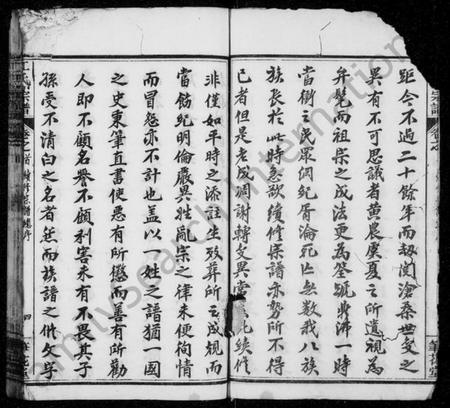 宗譜
卷首
距今不過二十餘年而劫閱滄桑世變之
異有不可思議者黃農虞夏之所遺視為
弁髦而祖宗之成法更為筌蹄沸一時
當衝之民眾倫紀胥淪死亡無數我八族
族長於此時急欲續修宗譜亦勢所不得
已者但是老成凋謝轉文異當此續修
非僅如平時之添註生歿葬所已成規而
當飭紀明倫嚴異姓亂宗之律未便徇情
而冒怨亦不計也蓋以一姓之譜猶一國
之史東筆直書使惡有所懲而善有所勸
人即不顧名譽不顧利害未有不畏其子
孫受不清白之名者然而族譜之作文字
氏宗譜
卷之首
續修宗譜總序
四
FamilySearch International